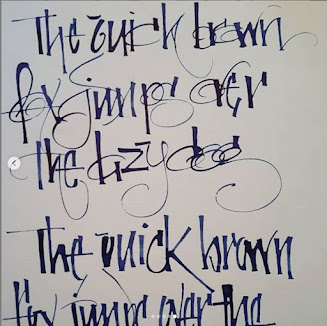 The quick brown
fox jumps over
the lazy dog
The quick brown
fox jumps over the